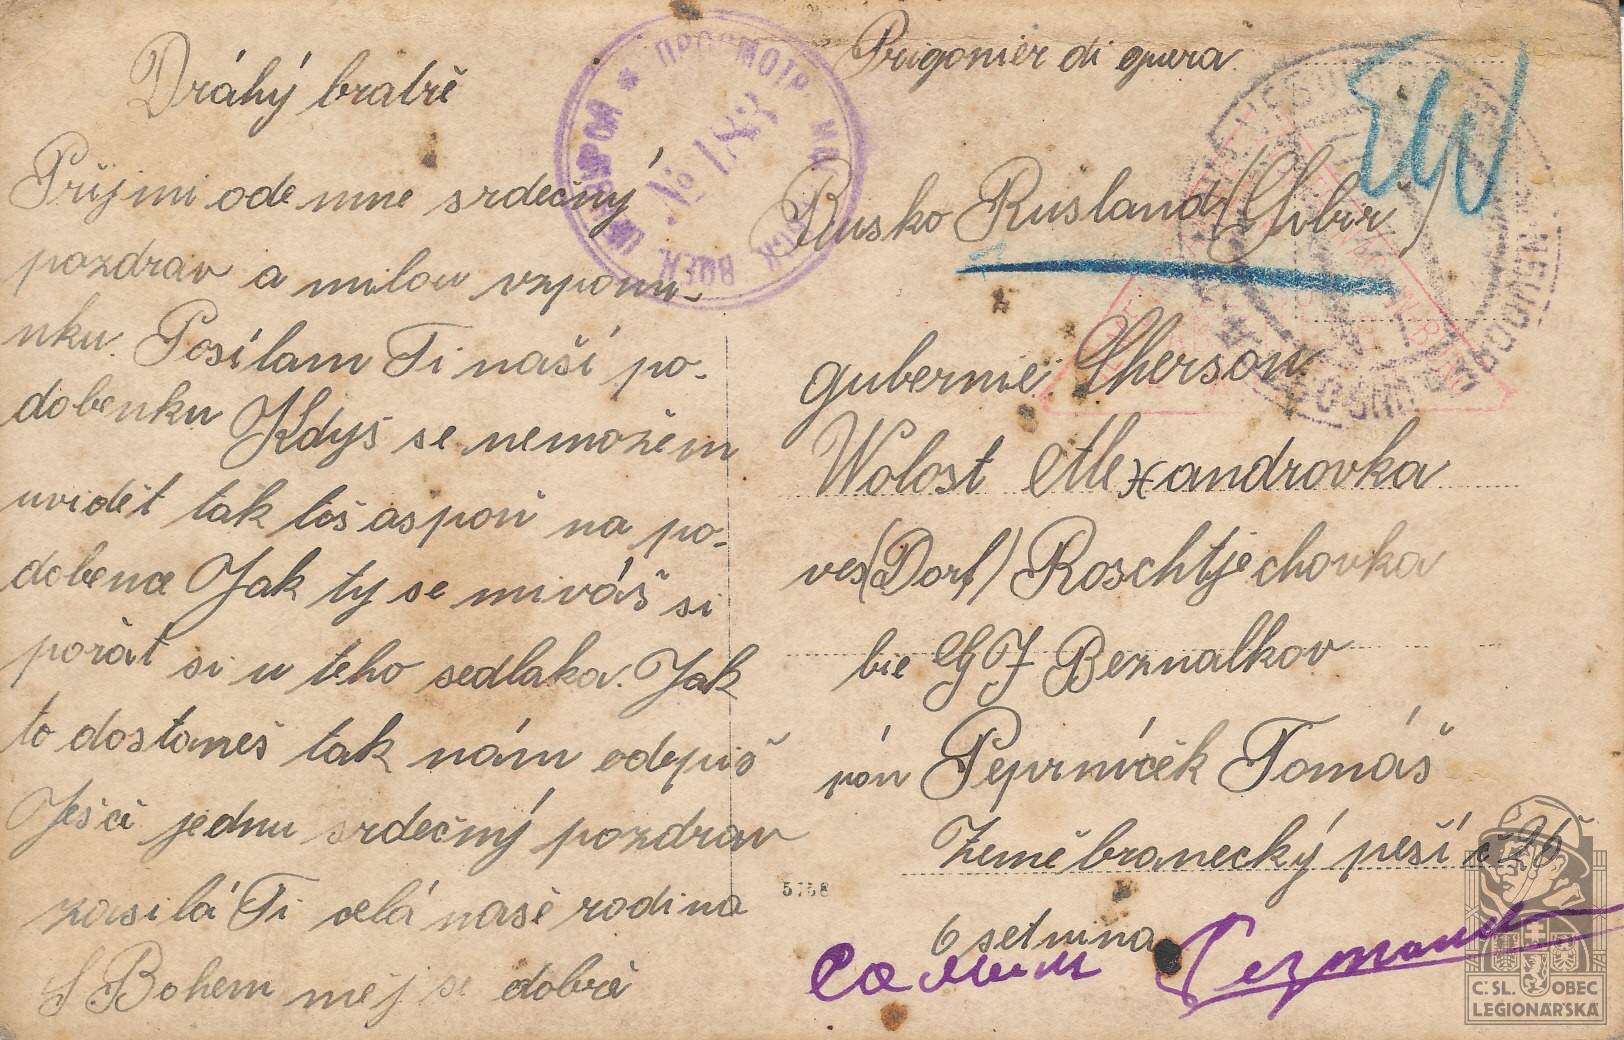 Dráhý bratrě
Přijmi ode mne srdečný
pozdrav a milou vzpomi-
nku. Posílam Ti naší po-
dobenku Kdyš se nemožem
uvidět tak toš aspoň na po-
dobence Jak ty se miváš si
pořat si u teho sedlaka. Jak
to dostaneš tak nám odepiš
Ješči jednu srdečný pozdrav
zasilá Ti celá naše rodina
S Bohem měj se dobře
ПРОСМОТР
ВОЕН. ЦЕНЗУРОЙ
№ 183
Prigonier di guera
Rusko Rusland (Chibir)
gubernie Cherson
Wolost Alexandrovka
ves (Dorf) Roschtjechovka
bie G J Beznalkov
pán Peprníček Tomáš
Zeměbranecký pěší č 25
6 setnina
5758
Č.SL. OBEC
LEGIONÁŘSKÁ